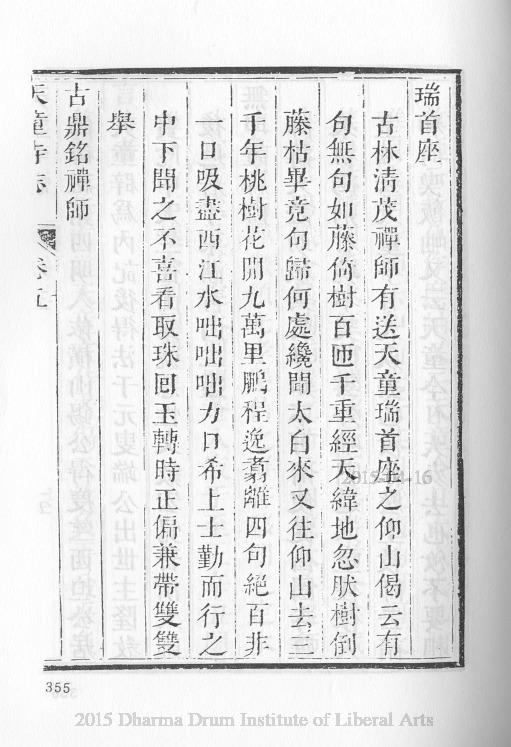 瑞首座
古林清茂禪師有送天童瑞首座之仰山偈云有
句無句如藤倚樹百匝千重經天緯地忽肰樹倒
藤枯畢竟句歸何處纔聞太白來又往仰山去三
千年桃樹花開九萬里鵬程逸翥離四句絕百非
一口吸盡西江水咄咄咄力口希上士勤而行之
中下聞之不喜看取珠回玉轉時正偏兼帶雙雙
舉
古鼎銘禪師
天童寺志 卷五
355
2015 Dharma Drum Institute of Liberal Arts